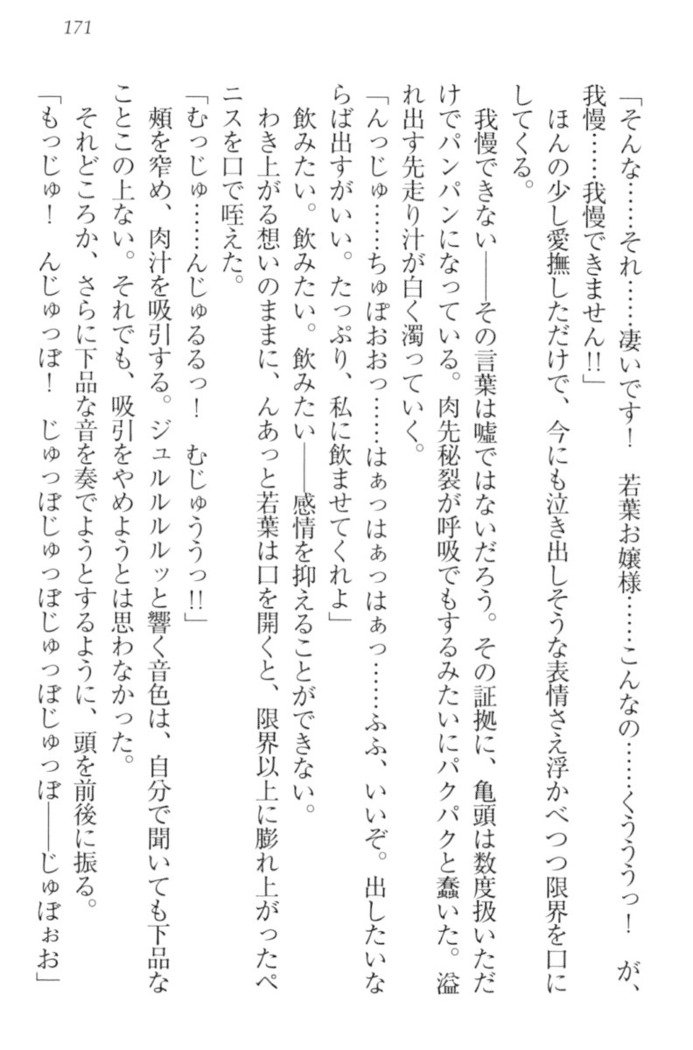 171
「そんな……それ……凄いです！　若葉お嬢様……こんなの……くうううっ！　が、
我慢……我慢できません!!」
　ほんの少し愛撫しただけで、今にも泣き出しそうな表情さえ浮かべつつ限界を口に
してくる。
　我慢できない――その言葉は嘘ではないだろう。その証拠に、亀頭は数度扱いただ
けでパンパンになっている。肉先秘裂が呼吸でもするみたいにパクパクと蠢いた。溢
れ出す先走り汁が白く濁っていく。
「んっじゅ……ちゅぽおおっ……はぁっはぁっはぁっ……ふふ、いいぞ。出したいな
らば出すがいい。たっぷり、私に飲ませてくれよ」
　飲みたい。飲みたい。飲みたい――感情を抑えることができない。
　わき上がる想いのままに、んあっと若葉は口を開くと、限界以上に膨れ上がったペ
ニスを口で咥えた。
「むっじゅ……んじゅるるっ！　むじゅううっ!!」
　頬を窄め、肉汁を吸引する。ジュルルルルッと響く音色は、自分で聞いても下品な
ことこの上ない。それでも、吸引をやめようとは思わなかった。
　それどころか、さらに下品な音を奏でようとするように、頭を前後に振る。
「もっじゅ！　んじゅっぽ！　じゅっぽじゅっぽじゅっぽじゅっぽ――じゅぽぉお」